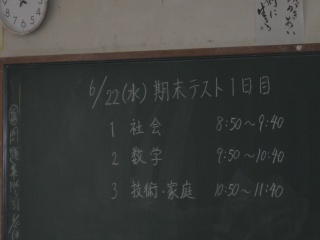 6/22(水) 期末テスト1日目
1 社会 8:50～9:40
2 数学 9:50～10:40
3 技術・家庭 10:50～11:40